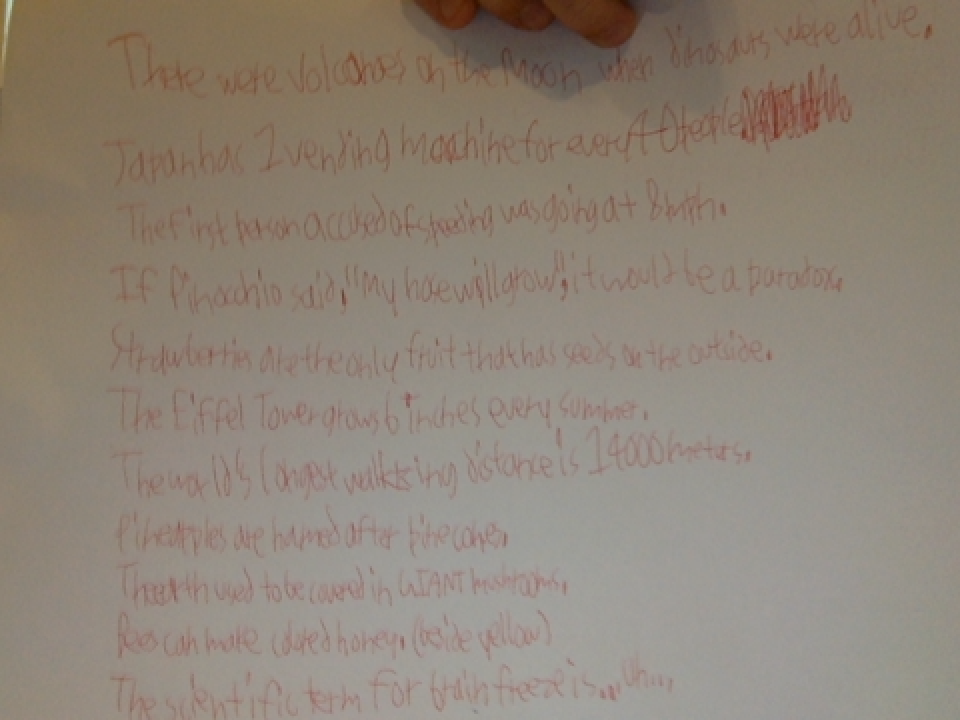 There were volcanoes on the Moon when dinosaurs were alive.
Japan has 1 vending machine for every 40 people
The first person accused of speeding was going at 8 mph.
If Pinocchio said, "My nose will grow", it would be a paradox.
Strawberries are the only fruit that has seeds on the outside.
The Eiffel Tower grows 6 inches every summer.
The world's longest walking distance is 14000 meters.
Pineapples are named after pinecones.
The earth used to be covered in GIANT mushrooms.
Bees can make colored honey. (beside yellow)
The scientific term for brain freeze is... Uh...